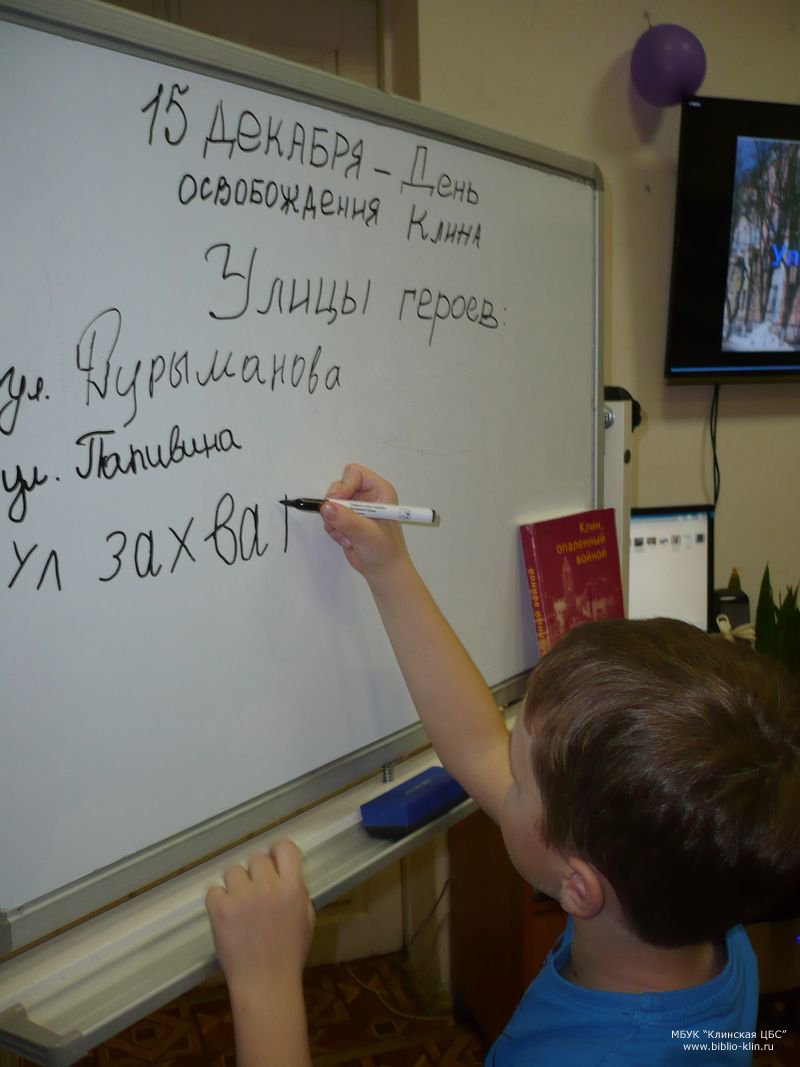 15 ДЕКАБРЯ – День
ОСВОБОЖДЕНИЯ КЛИНА
Улицы героев:
ул. Дурыманова
ул. Папивина
ул захва
Клин,
опаленный
войной
Ул
МБУК "Клинская ЦБС"
www.biblio-klin.ru